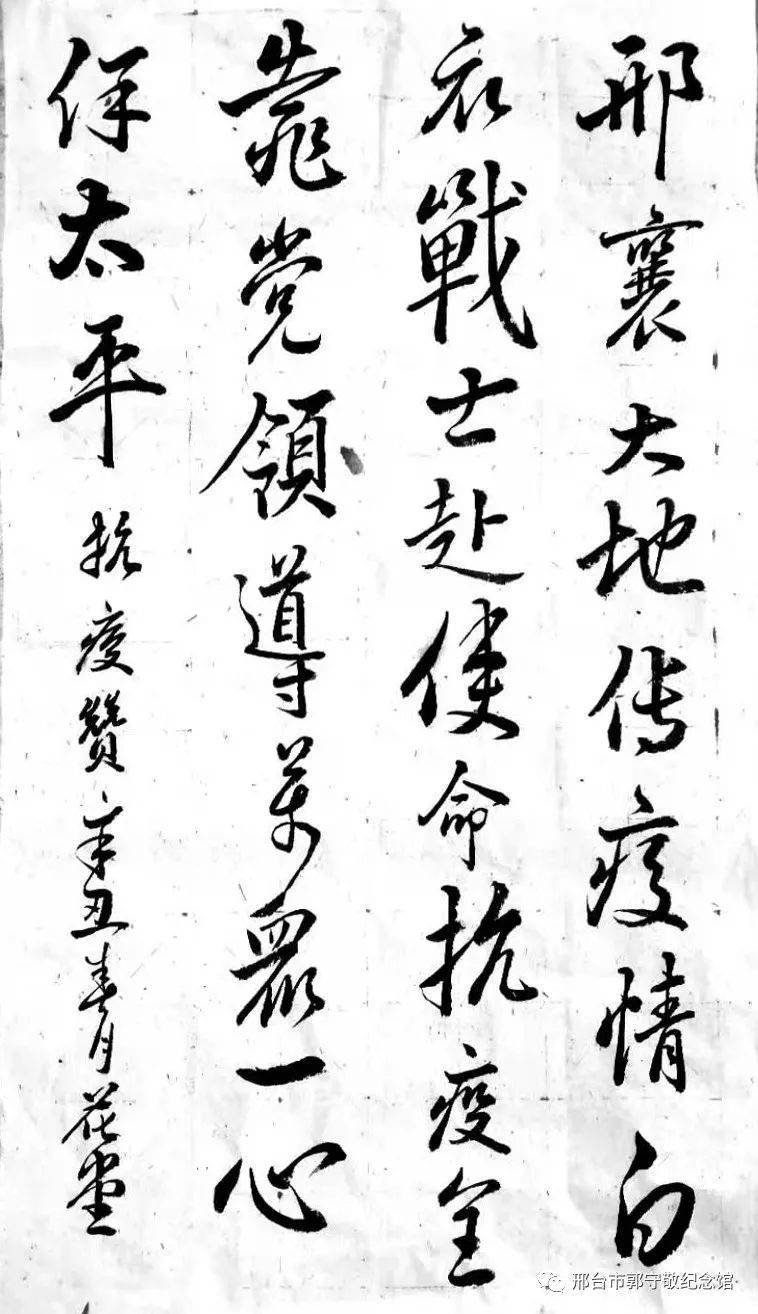 邢襄大地传疫情白
衣戰士赴使命抗疫全
靠党領導萬衆一心
保太平 抗疫贊 辛丑春月 花堂
邢台市郭守敬纪念馆